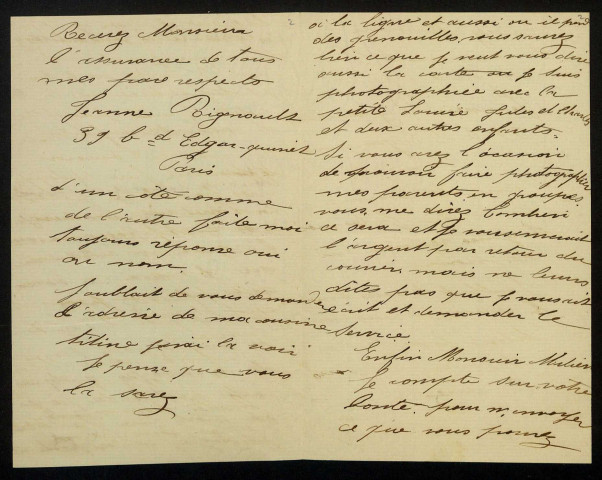 2
Recevez Monsieur
l'assurance de tous
mes respects
Jeanne Rignault
39 b d Edgar-quinet
Paris
d'un cote comme
de l'autre faite moi
toujours réponse oui
ou nom.
J'oubliait de vous demander
l'adresse de ma cousine
titine j'irai la voir
Je pense que vous
la savez
a la ligne et aussi ou il
des grenouilles. vous savez
bien ce que je veut vous dire
aussi la carte ou je suis
photographiée avec la
petite Louise Jules et Charles
et deux autres enfants.
Si vous avez l'ocasion
de pouvoir faire photographier
mes parents en groupes.
vous me direz combien
ce sera et je vous enverait
l'argent par retour du
courrier mais ne leurs
dites pas que je vous ait
écrit et demander le
service
Enfin Monsieur Milien
Je compte sur votre
bonté pour m'envoyer
ce que vous pourez